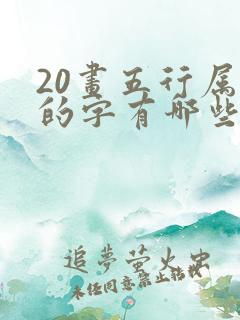 20畫五行属
的字有哪些
追夢萤火虫
未任同意禁止转载